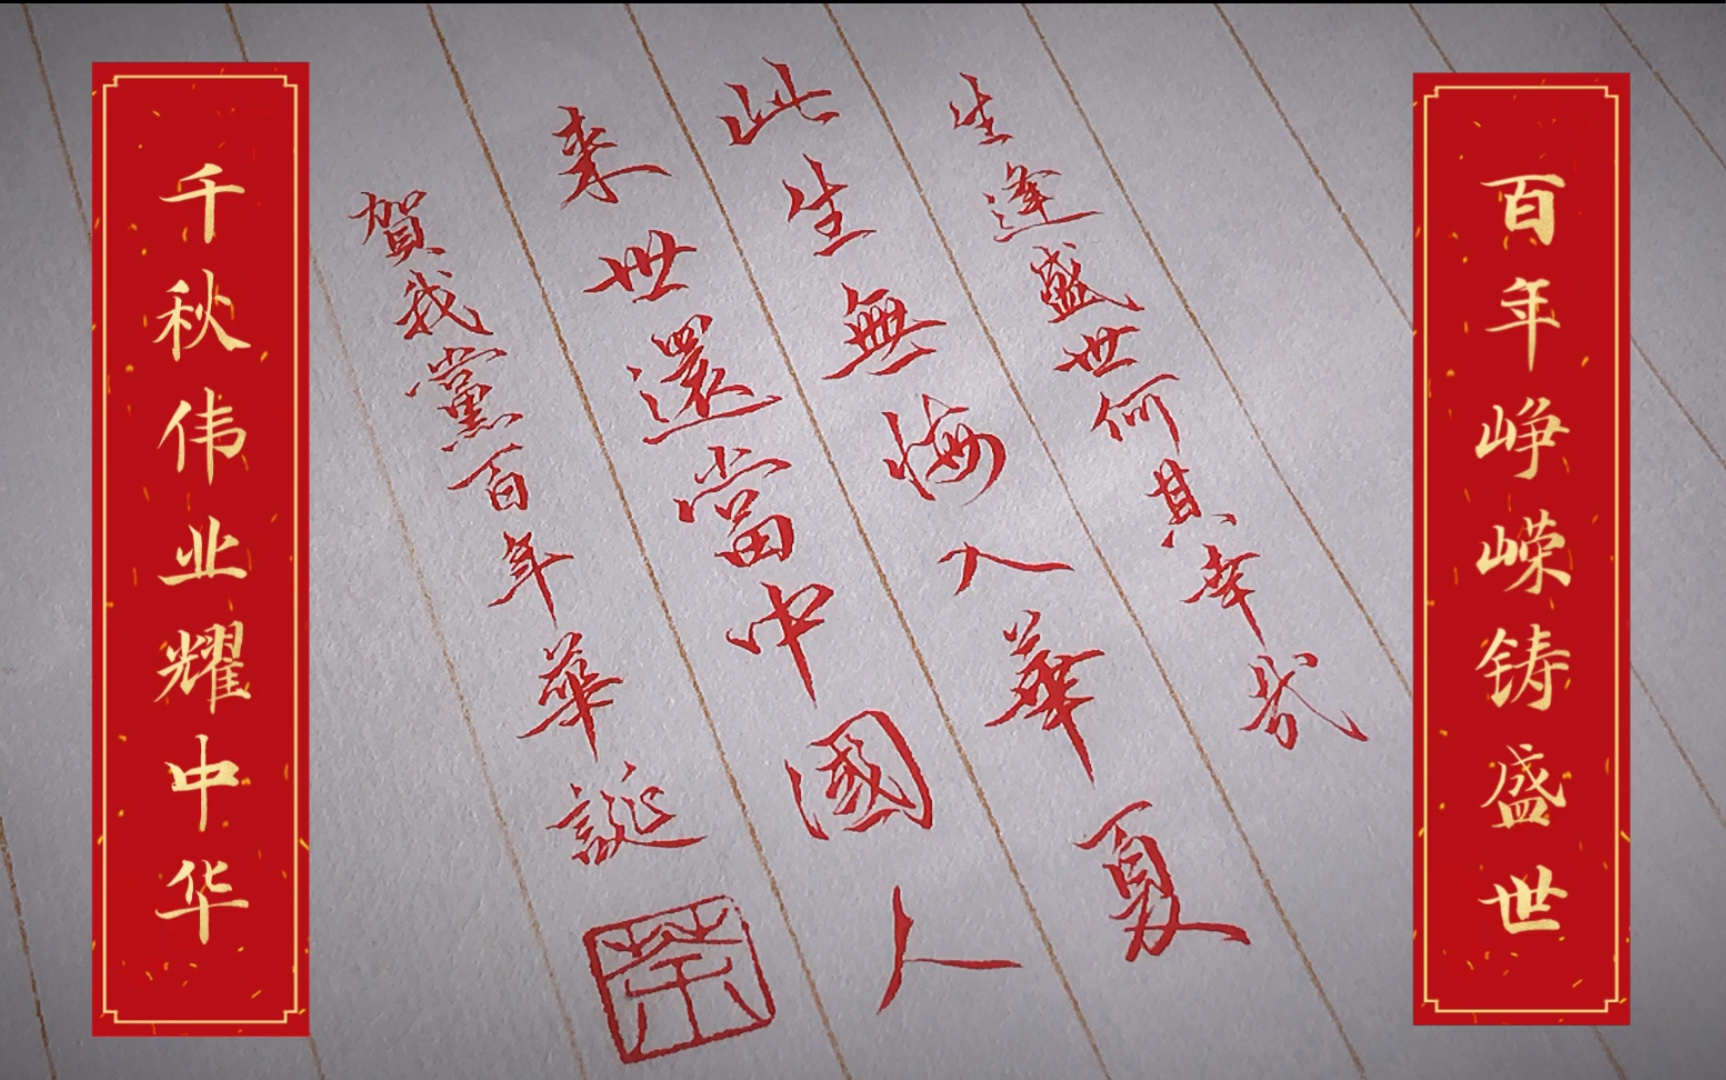 百年峥嵘铸盛世
生逢盛世何其幸哉
此生無悔入華夏
来世還當中國人
賀我黨百年華誕
荣
千秋伟业耀中华